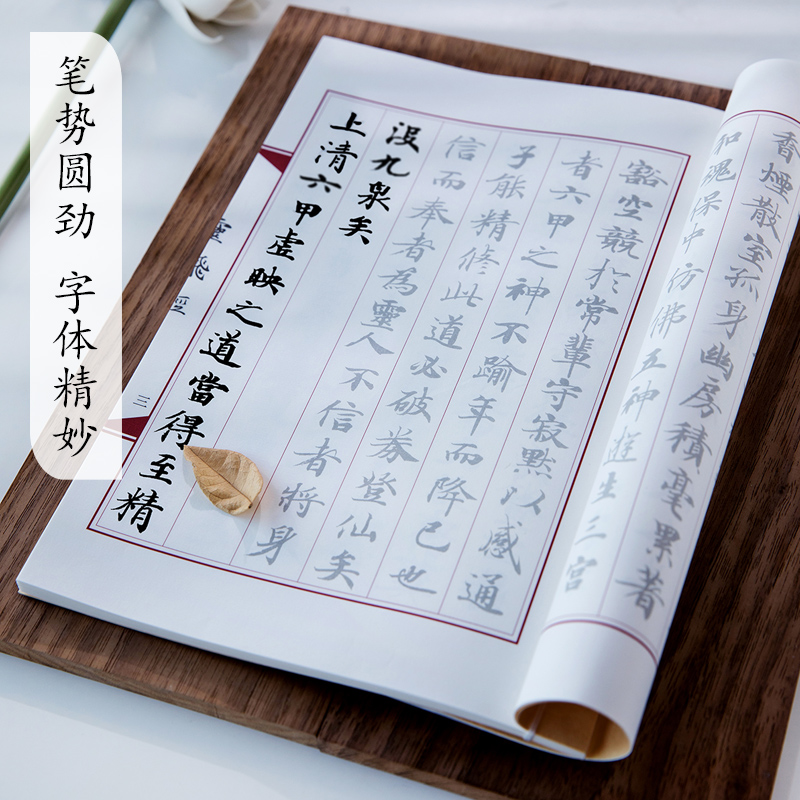 笔势圆劲 字体精妙
香煙散室孤身幽房積毫累著
和魂保中仿佛五神遊生三宫
豁空競於常輩守寂默以感通
者六甲之神不踰年而降已也
子能精修此道必破券登仙矣
信而奉者為靈人不信者將身
没九泉矣
上清六甲虚映之道當得至精
靈飛經
三